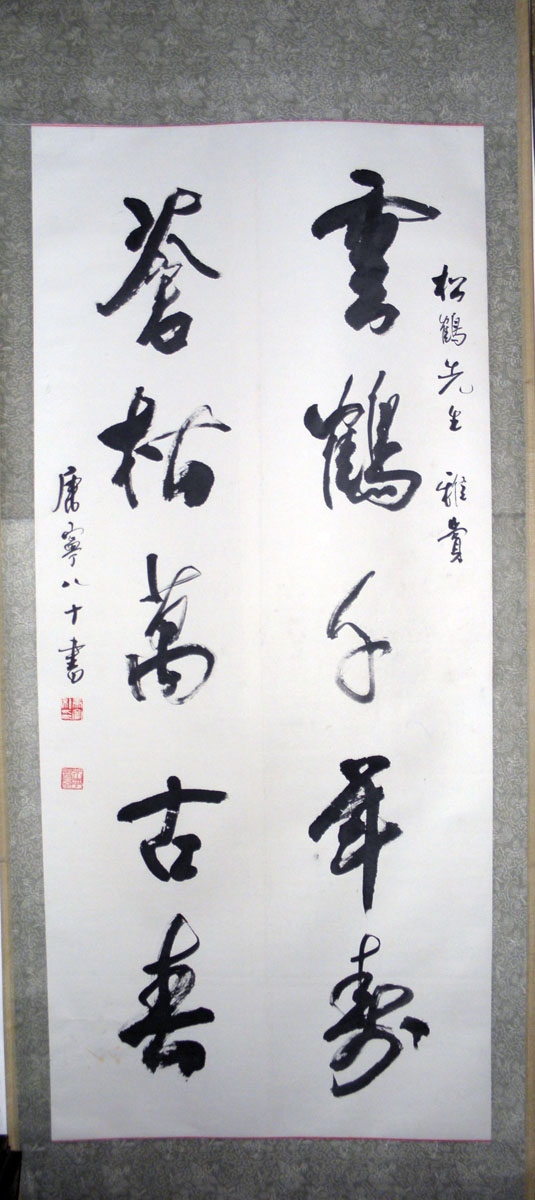 松鶴先生 雅賞
雲鶴千年壽
蒼松萬古春
康寧八十書